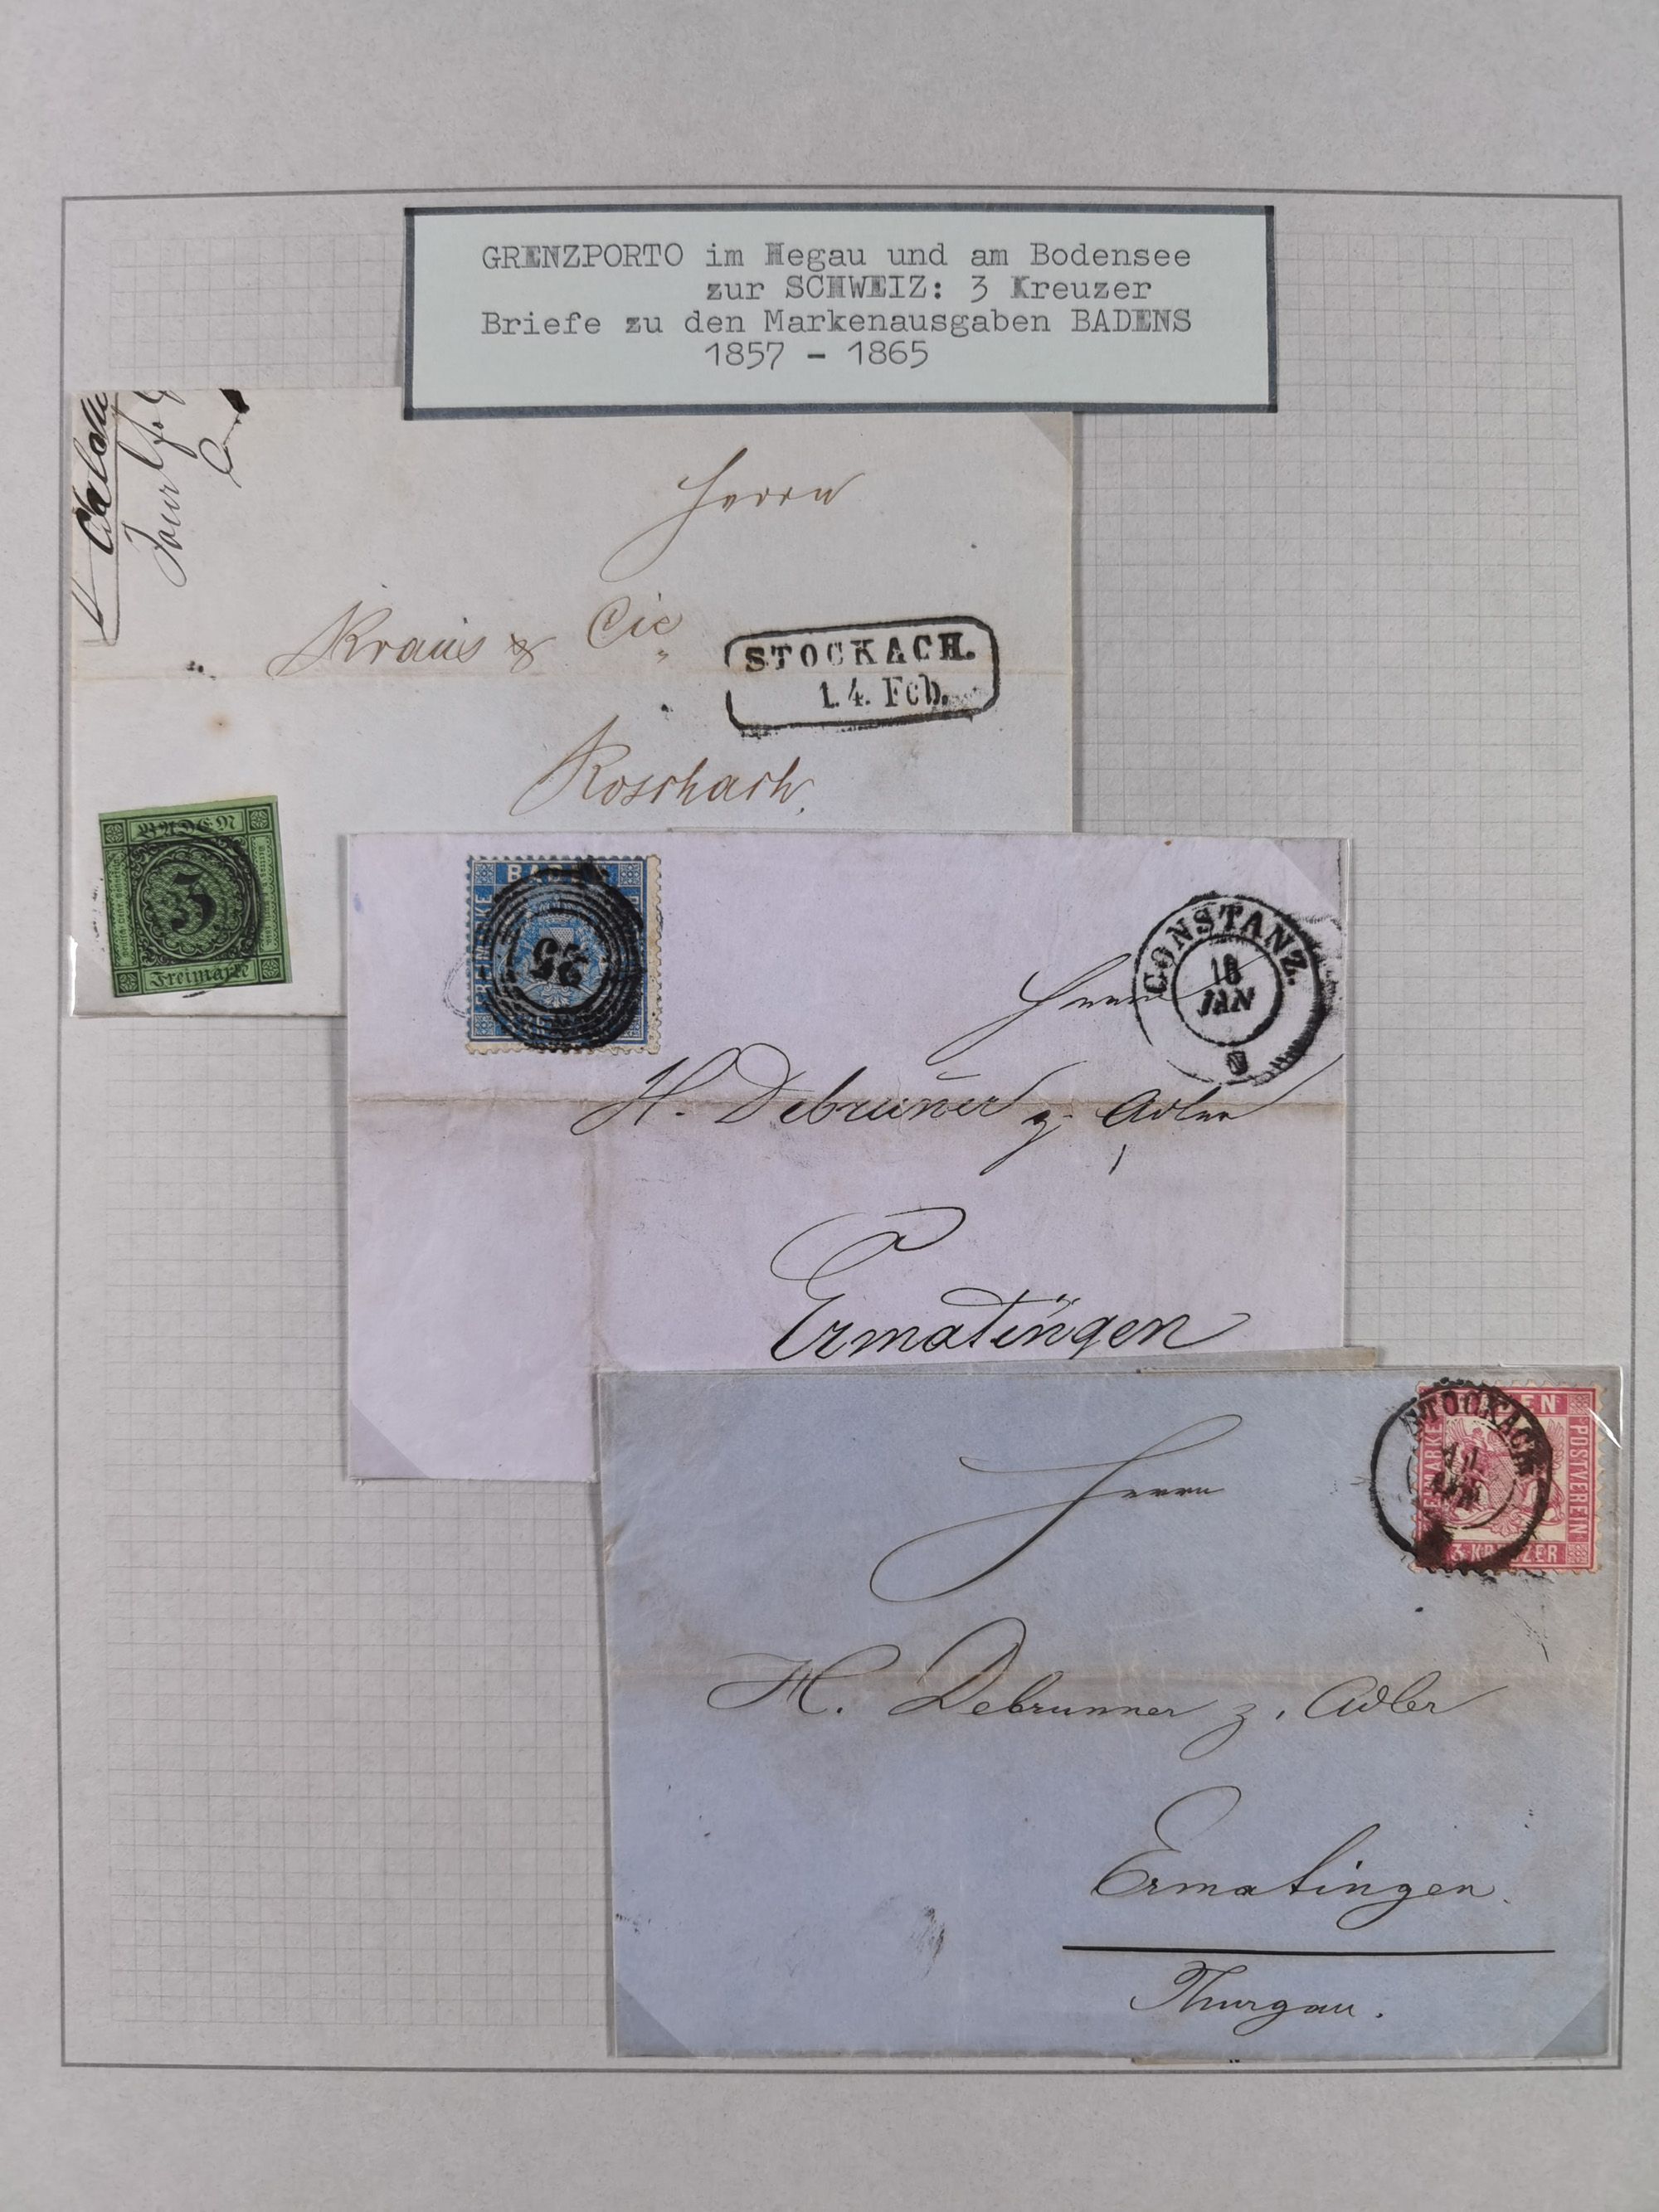 GRENZPORTO im Hegau und am Bodensee
zur SCHWEIZ: 3 Kreuzer
Briefe zu den Markenausgaben BADENS
1857 - 1865
Herrn
Kraus & Cie
STOCKACH.
14. Feb.
Roschach.
BADEN
3
Freimarke
BADEN
FREIMARKE
25
CONSTANZ.
18
JAN
Herrn
H. Debrunner z. Adler
Ermatingen
STOCKACH
FREIMARKE
POSTVEREIN
3 KREUZER
Herrn
H. Debrunner z. Adler
Ermatingen.
Thurgau.